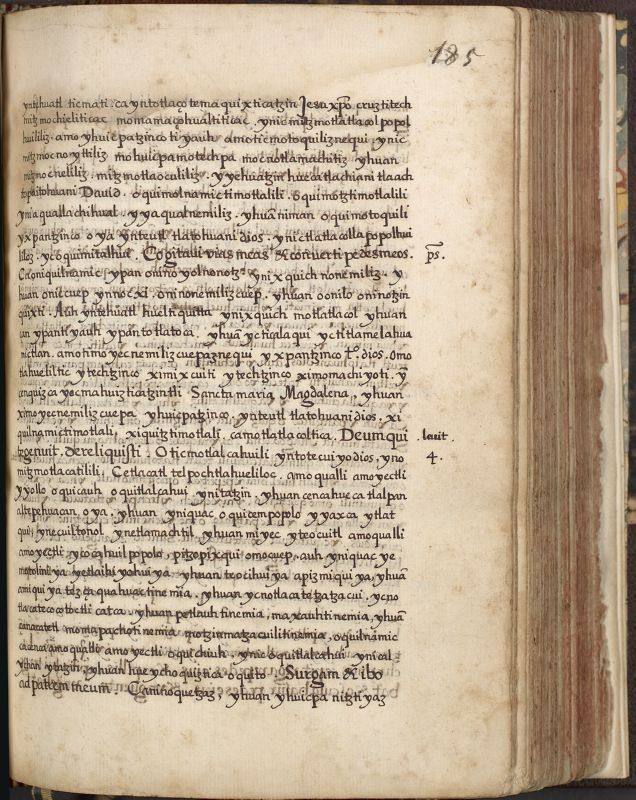 185
yntehuatl ticmati ca yntotlaço temaquixticatzin Jesu xpo cruztitech
mitzmochieliticac momamaçohualtiticac, ynic mitzmotlatlacolpopol
huililiz. amo yhuicpatzinco tiyauh amo ticmotoquiliznequi, ynic
mitzmocnoyttiliz mohuicpa motechpa mocnotlamachitiz yhuan
mitzmocneliliz. mitzmotlaoculiliz. y yehuatzin huecatlachiani tlaach
topaitohuani Dauid. oquimolnamictimotlalili. oquimotztimotlalili
yn iaqualla chihual. y yaqualnemiliz. yhuã niman oquimotoquili
yxpantzinco oya ynteutl tlatohuani dios. ynic tlatlacolla popolhui
liloz. yc oquimitalhui. Cogitaui vias meas & conuerti pedes meos. ps.
Ca oniquilnamic ypan onino yolnonotz ynixquich nonemiliz. y
huan oniccuep ynnocxi. oninonemilizcuep. yhuan oniclo oninotzin
quixti. Auh yntehuatl huel tiquitta ynixquich motlatlacol yhuan
can ypan tiyauh ypan totlatoca, yhuã yc ticalaqui yc titlamelahua
mictlan. amo timoyecnemilizcuepaznequi yxpantzinco to. dios. Amo
tlahueliltic ytechtzinco ximixcuiti ytechtzinco ximomachiyoti. y
cenquizca yecmahuiztica tzintli Sancta maria Magdalena, yhuan
ximoyecnemilizcuepa yhuicpatzinco. ynteutl tlatohuani dios. xi
quilnamictimotlali, xiquitztimotlali. ca motlatlacoltica. Deum qui lauit.
te genuit. dereliquisti. Oticmotlalcahuili yntotecuiyo dios. yno 4.
mitzmotlacatilili. Ce tlacatl telpochtlahueliloc. amo qualli amo yectli
yyollo oquicauh oquitlalcahui ynitatzin. yhuan cenca hueca tlalpan
altepehuacan. oya. yhuan yniquac oquitempopolo yyaxca ytlat
qui. ynecuiltonol ynetlamachtil, yhuan miyec yteocuitl amo qualli
amo yectli. yc oçahuilpopolo, pitzopixqui omocuep, auh yniquac ye
motolinia ya yhuan teocihui ya apizmiqui ya, yhuã
amiqui ya teza qua huactinemia, yhuan ycnotlacatezatzacui, ycno
tlacatecocototli catca. yhuan petlauhtinemia, maxauhtinemia, yhuã
moma pachotinemia motzinmatzacuilitinemia, oquilnamic
ca cenca amo qualli amo yectli oquichiuh. ynic oquitlalcahui ynical
ychan ytatzin. yhuan huey choquiztica oquito. Surgam & ibo
ad patrem meum. Caninoquetzaz, yhuan yhuicpa nitztiyaz